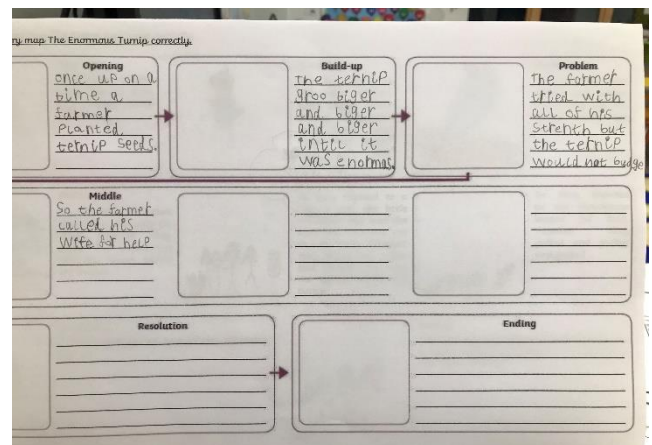 ry map The Enormous Turnip correctly.
Opening
once up on a
time a
farmer
planted
ternip seeds.
Build-up
The ternip
groo biger
and biger
and biger
intil it
was enormas.
Problem
The farmer
tried with
all of his
strenth but
the ternip
would not budge
Middle
So the farmer
called his
wife for help
Resolution
Ending